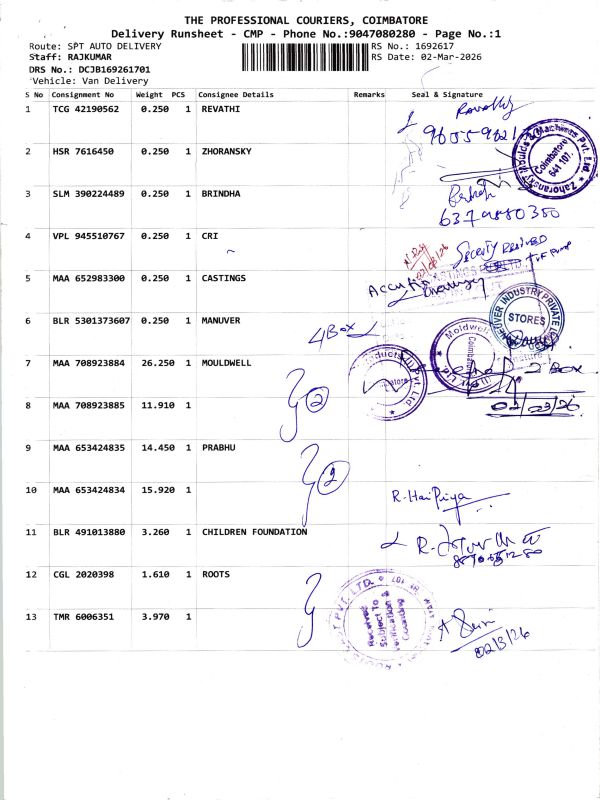 THE PROFESSIONAL COURIERS, COIMBATORE
Delivery Runsheet - CMP - Phone No.:9047080280 - Page No.:1
Route: SPT AUTO DELIVERY
RS No.: 1692617
Staff: RAJKUMAR
RS Date: 02-Mar-2026
DRS No.: DCJB169261701
Vehicle: Van Delivery
S No Consignment No Weight PCS Consignee Details Remarks Seal & Signature
1 TCG 42190562 0.250 1 REVATHI
2 HSR 7616450 0.250 1 ZHORANSKY
Coimbatore 641 107.
3 SLM 390224489 0.250 1 BRINDHA
4 VPL 945510767 0.250 1 CRI
5 MAA 652983300 0.250 1 CASTINGS
6 BLR 5301373607 0.250 1 MANUVER
4 Box
STORES
7 MAA 708923884 26.250 1 MOULDWELL
2 Box
2
02/03/26
8 MAA 708923885 11.910 1
9 MAA 653424835 14.450 1 PRABHU
2
10 MAA 653424834 15.920 1
R. Hari Priya
11 BLR 491013880 3.260 1 CHILDREN FOUNDATION
12 CGL 2020398 1.610 1 ROOTS
Received
Subject To
Verification &
Counting
13 TMR 6006351 3.970 1
02/3/26